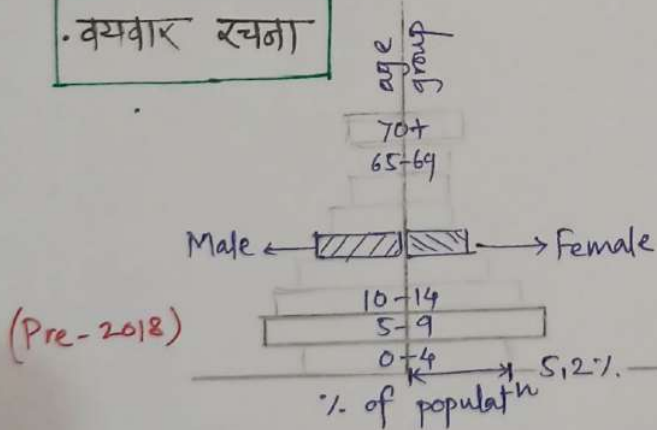 . वयवार रचना
age
group
70+
65-69
Male
Female
10-14
(Pre-2018)
5-9
0-4
5,2%.
% of populatⁿ